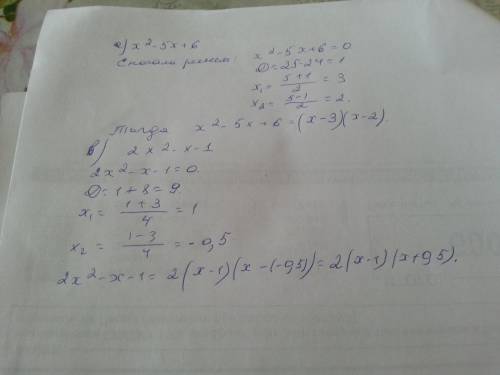 а) x²-5x+6
Сначала решаем: x²-5x+6=0
D=25-24=1
x₁= (5+1)/2 = 3
x₂= (5-1)/2 = 2.
Тогда x²-5x+6=(x-3)(x-2).
в) 2x²-x-1
2x²-x-1=0.
D=1+8=9
x₁= (1+3)/4 = 1
x₂= (1-3)/4 = -0,5
2x²-x-1=2(x-1)(x-(-0,5))=2(x-1)(x+0,5).